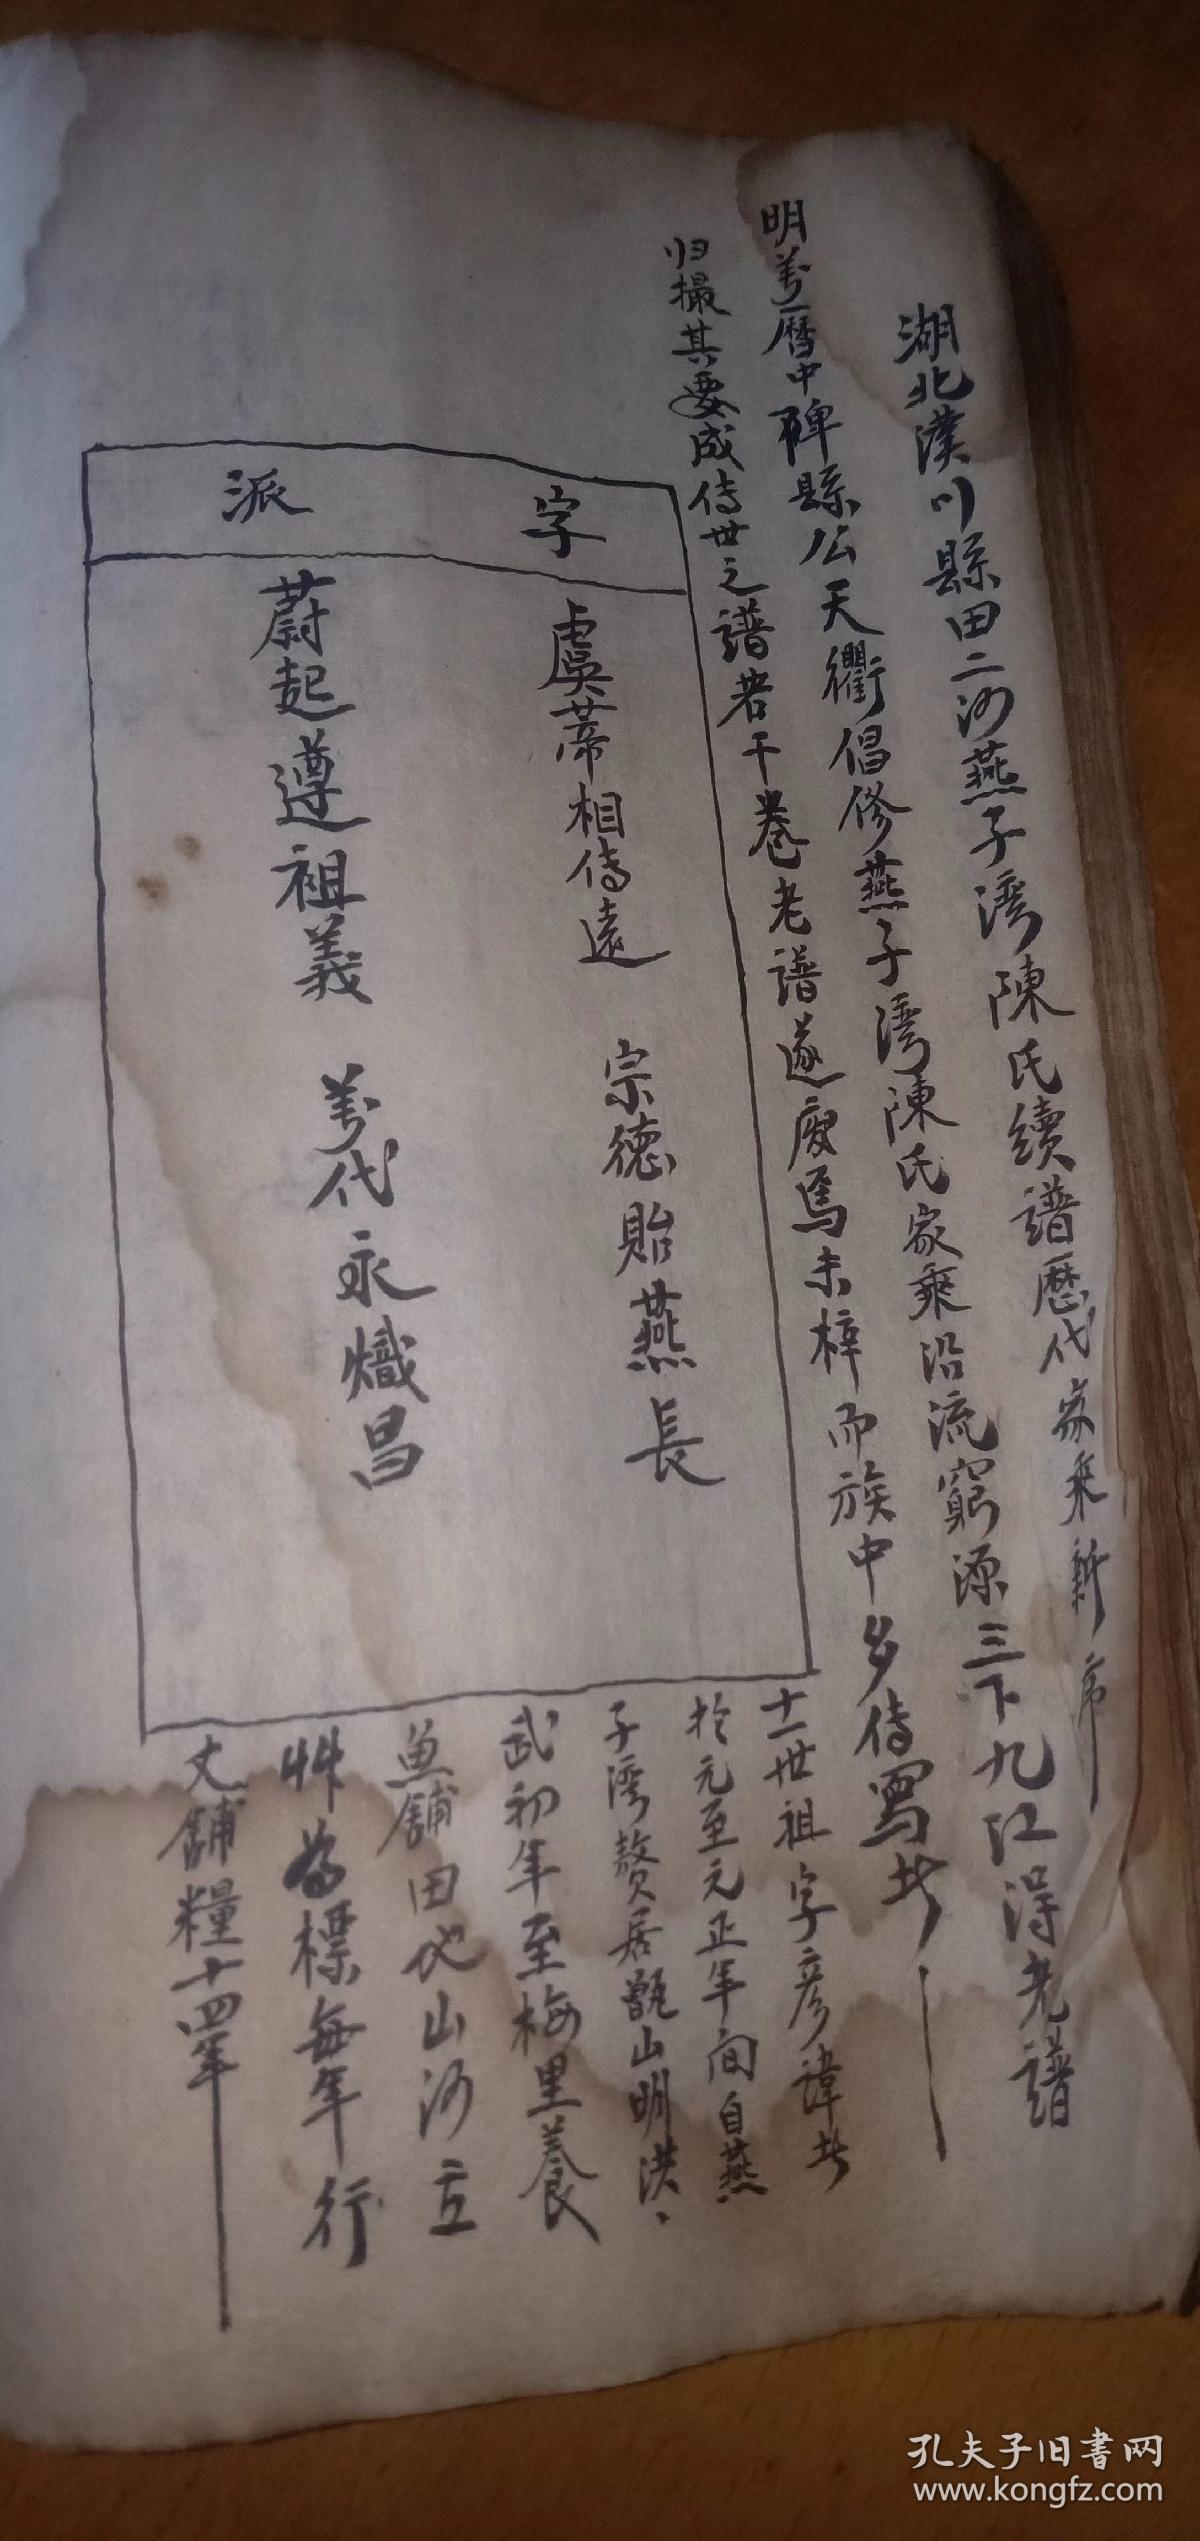 湖北漢川縣田二河燕子湾陳氏續譜歷代家乘新
明萬曆中禆縣公天衢倡修燕子湾陳氏家乘沿流窮源三下九江得老譜
归撮其要成傳世之譜若干卷老譜遂廢焉未梓而族中多傳寫者
字派
虞蒂相傳遠 宗德貽燕長
蔚起遵祖義 萬代永熾昌
十一世祖字彦諱者
於元至元正年间自燕
子湾贅居甑山明洪、
武初年至梅里養
魚舖田地山河立
艸為標每年行
丈舖糧十四年
孔夫子旧書网
www.kongfz.com